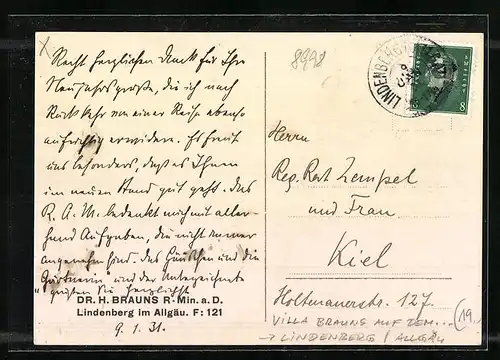 Recht herzlichen Dank für Ihre
Neujahrsgrüße, die ich nach
Rückkehr von einer Reise ebenso
aufrichtig erwidere. Es freut
uns besonders, daß es Ihnen
im neuen Stand gut geht. Das
R. A. M. bedenkt mich mit aller-
hand Aufgaben, die nicht immer
angenehm sind. Das Häuschen und die
"Gärtnerin" und der Unterzeichnete
grüßen Sie herzlichst
DR. H. BRAUNS R. Min. a. D.
Lindenberg im Allgäu. F: 121
9. 1. 31.
8998
LINDENBERG
8
Herrn
Reg. Rat Zempel
und Frau
Kiel
Holtenauerstr. 127.
VILLA BRAUNS AUF DEM...
→ LINDENBERG / ALLGÄU
19.